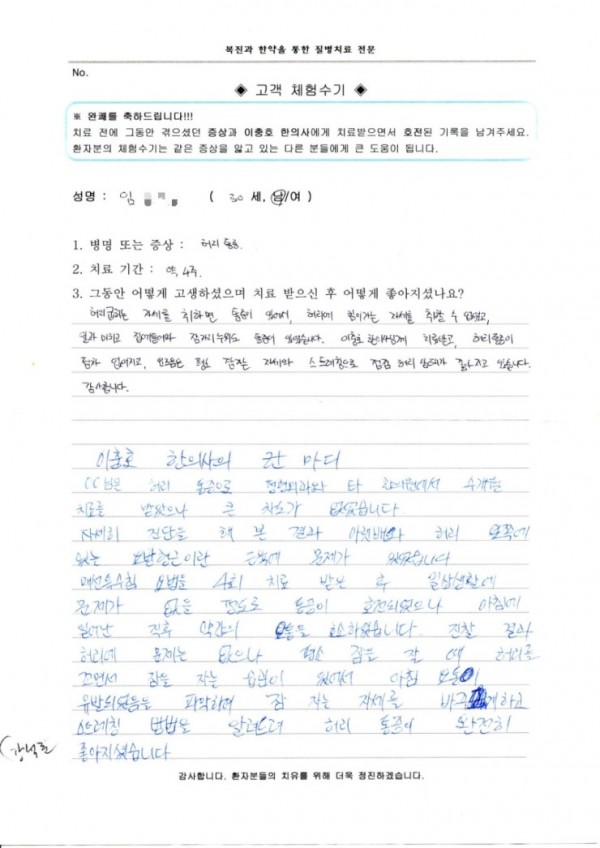 복진과 한약을 통한 질병치료 전문
No.
◈ 고객 체험수기 ◈
※ 완쾌를 축하드립니다!!!
치료 전에 그동안 겪으셨던 증상과 이충호 한의사에게 치료받으면서 호전된 기록을 남겨주세요.
환자분의 체험수기는 같은 증상을 앓고 있는 다른 분들에게 큰 도움이 됩니다.
성명 : 임 ( 30 세, 남/여 )
1. 병명 또는 증상 : 허리 통증.
2. 치료 기간 : 약 4주.
3. 그동안 어떻게 고생하셨으며 치료 받으신 후 어떻게 좋아지셨나요?
허리굽히는 자세를 취하면 통증이 있어서, 허리에 힘이가는 자세를 취할 수 없었고,
일과 마치고 집에돌아와 잠자리 누워도 통증이 있었습니다. 이충호 한의사님께 치료받고, 허리통증이
점차 없어지고, 평소 잠자는 자세와 스트레칭으로 점점 허리 좋아지고 있습니다.
감사합니다.
이충호 한의사의 한 마디
CC님은 허리 통증으로 정형외과와 타 한의원에서 수개월
치료를 받았으나 큰 차도가 없었습니다
자세히 진단을 해 본 결과 아랫배와 허리 양쪽에
있는 요방형근이란 근육에 문제가 있었습니다
매선특수침 요법을 4회 치료 받은 후 일상생활에
문제가 없을 정도로 통증이 호전되었으나 아침에
일어난 직후 약간의 요통을 호소하였습니다. 진찰 결과
허리에 문제는 없으나 평소 잠을 잘 때 허리를
꼬면서 잠을 자는 습관이 있어서 아침 요통이
유발되었음을 파악하여 잠 자는 자세를 바르게하고
스트레칭 방법을 알려드려 허리 통증이 완전히
좋아지셨습니다
감사합니다. 환자분들의 치유를 위해 더욱 정진하겠습니다.